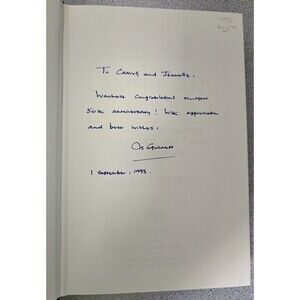 To Carroll and Jeanette,
Warmest congratulations on your
50th anniversary! With appreciation
and best wishes.
Os Guinness
1 September, 1993.